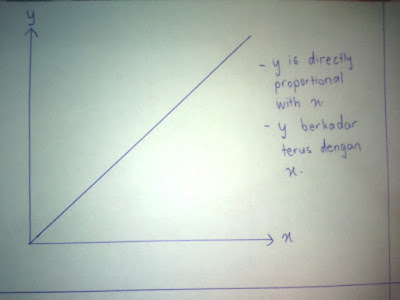 y
- y is directly
proportional
with x
- y berkadar
terus dengan
x.
x